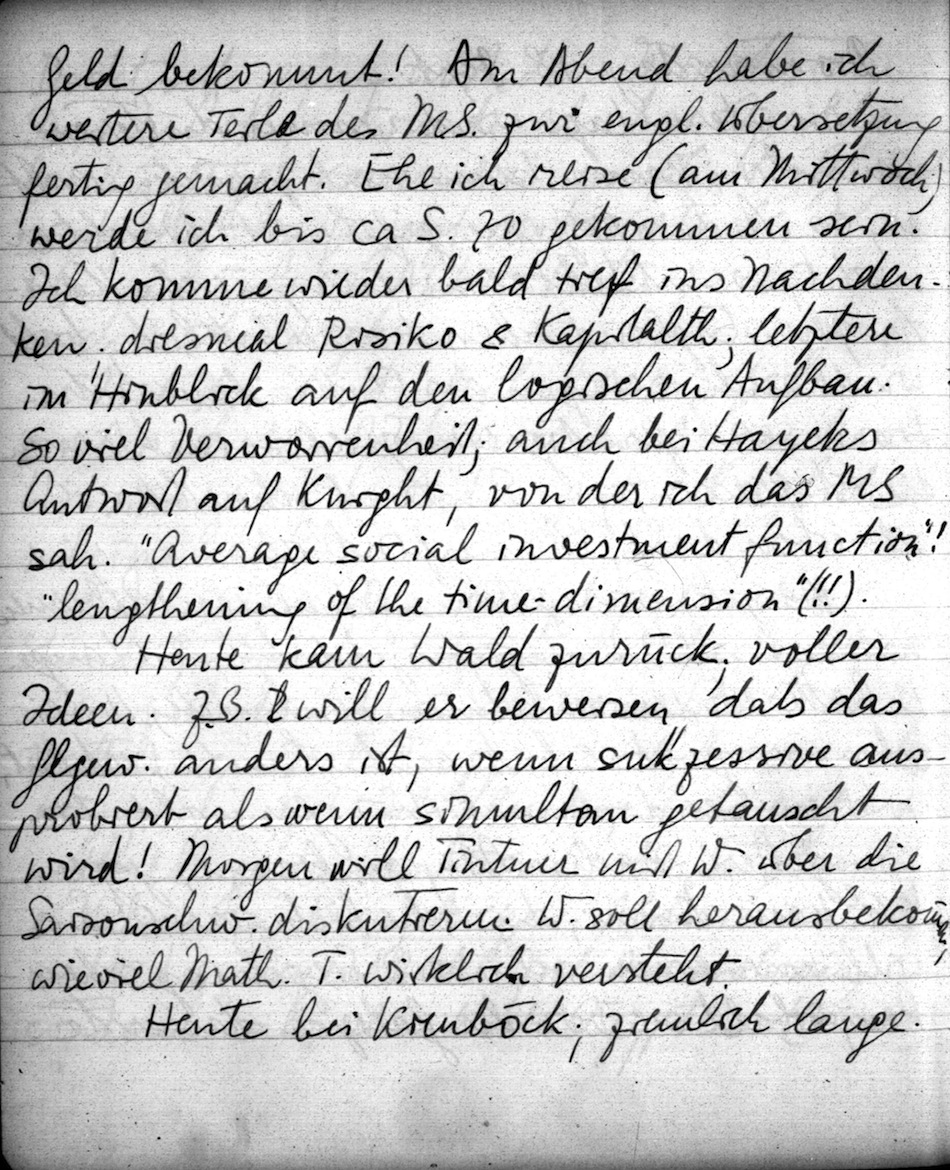 Geld bekommt! Am Abend habe ich
weitere Teile des MS. zur engl. Übersetzung
fertig gemacht. Ehe ich reise (am Mittwoch)
werde ich bis ca S. 70 gekommen sein.
Ich komme wieder bald tief ins Nachden-
ken. diesmal Risiko & Kapitalth.; letztere
im Hinblick auf den logischen Aufbau.
So viel Verworrenheit; auch bei Hayeks
Antwort auf Knight, von der ich das MS
sah. "Average social investment function"!
"lengthening of the time-dimension"(!!).
Heute kam Wald zurück; voller
Ideen. Z.B. will er beweisen, dass das
Glgew. anders ist, wenn sukzessive aus-
probiert als wenn simultan getauscht
wird! Morgen will Tintner mit W. über die
Saisonschw. diskutieren. W. soll herausbekomm,
wieviel Math. T. wirklich versteht.
Heute bei Kienböck; ziemlich lange.